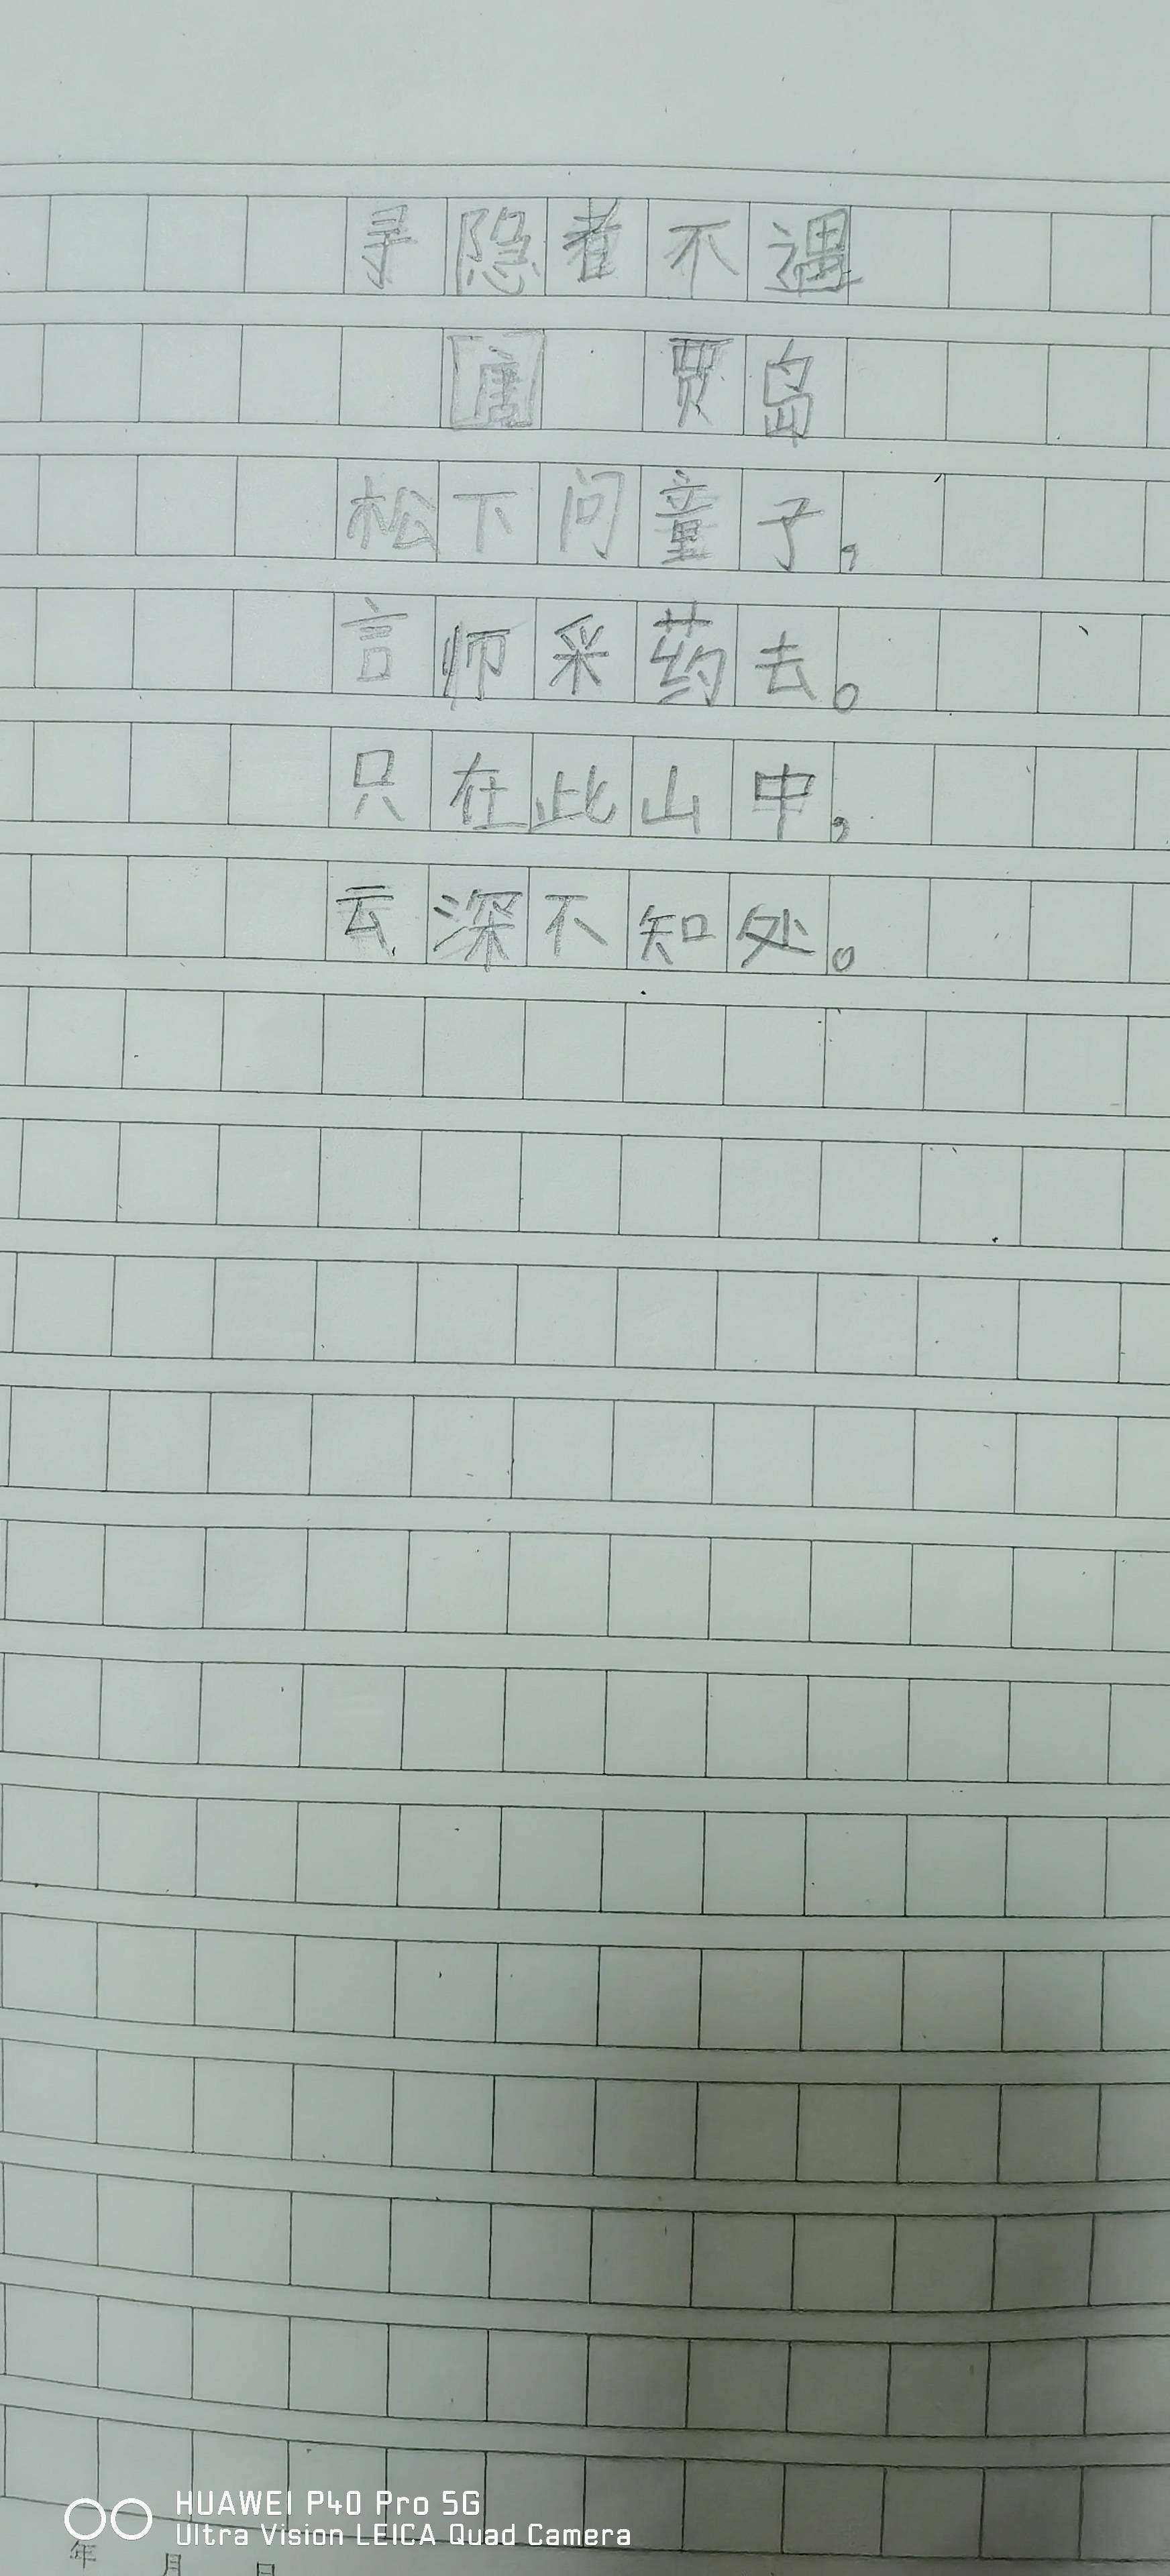 寻隐者不遇
唐 贾岛
松下问童子，
言师采药去。
只在此山中，
云深不知处。
HUAWEI P40 Pro 5G
Ultra Vision LEICA Quad Camera
年 月 日